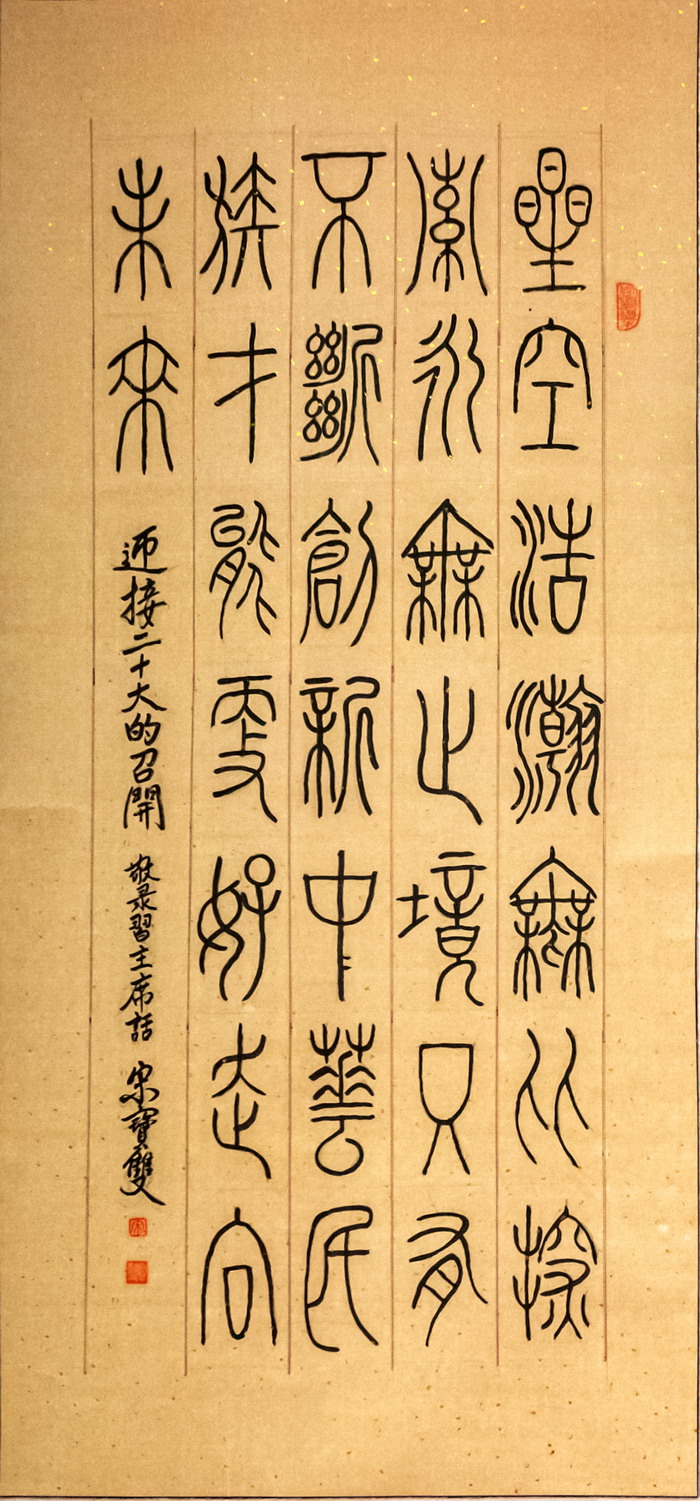 星空浩瀚無比探
索永無止境只有
不斷創新中華民
族才能更好走向
未來
迎接二十大的召開 敬录習主席話 宋寶雙